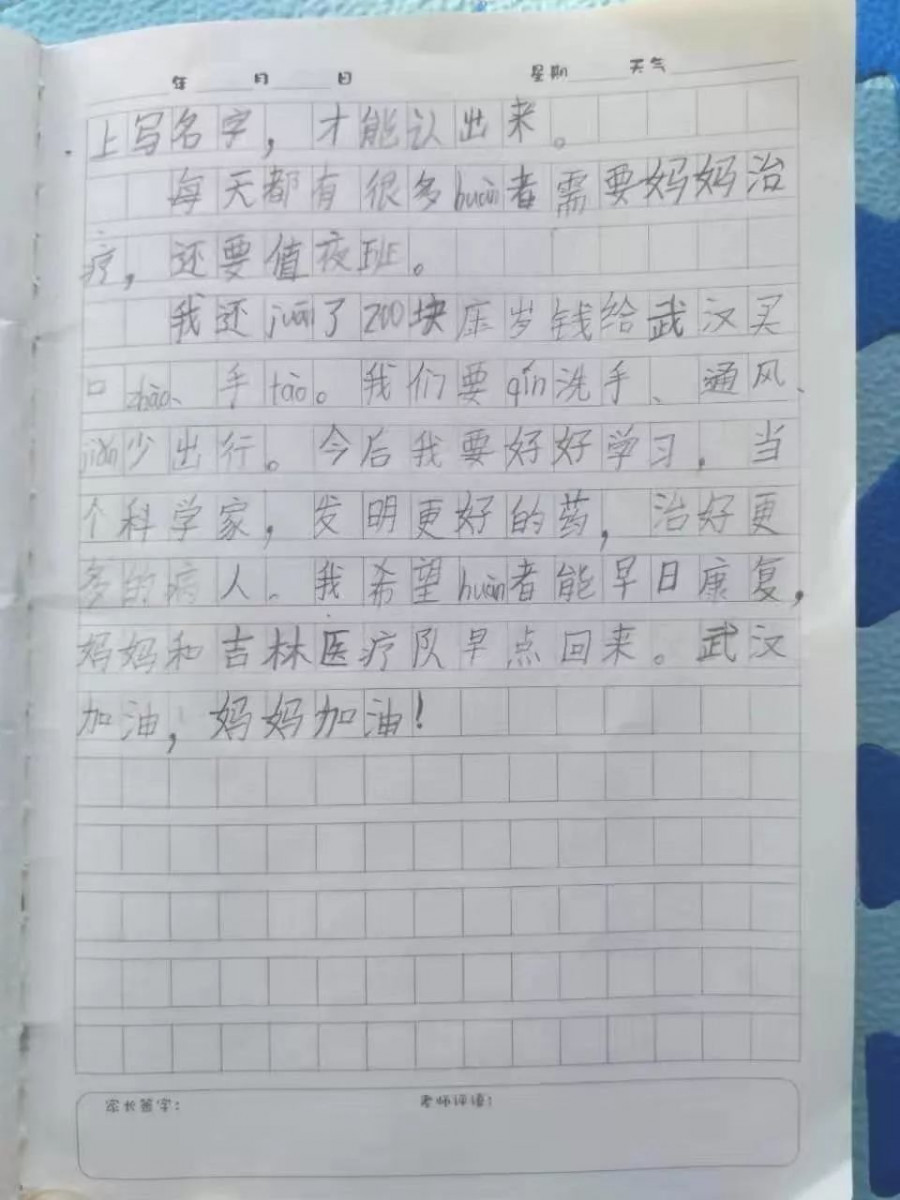 年 月 日 星期 天气
上写名字，才能认出来。
每天都有很多huàn者需要妈妈治
疗，还要值夜班。
我还juān了200块压岁钱给武汉买
口zhào、手tào。我们要qín洗手、通风、
jiǎn少出行。今后我要好好学习，当
个科学家，发明更好的药，治好更
多的病人。我希望huàn者能早日康复，
妈妈和吉林医疗队早点回来。武汉
加油，妈妈加油！
家长签字： 老师评语：